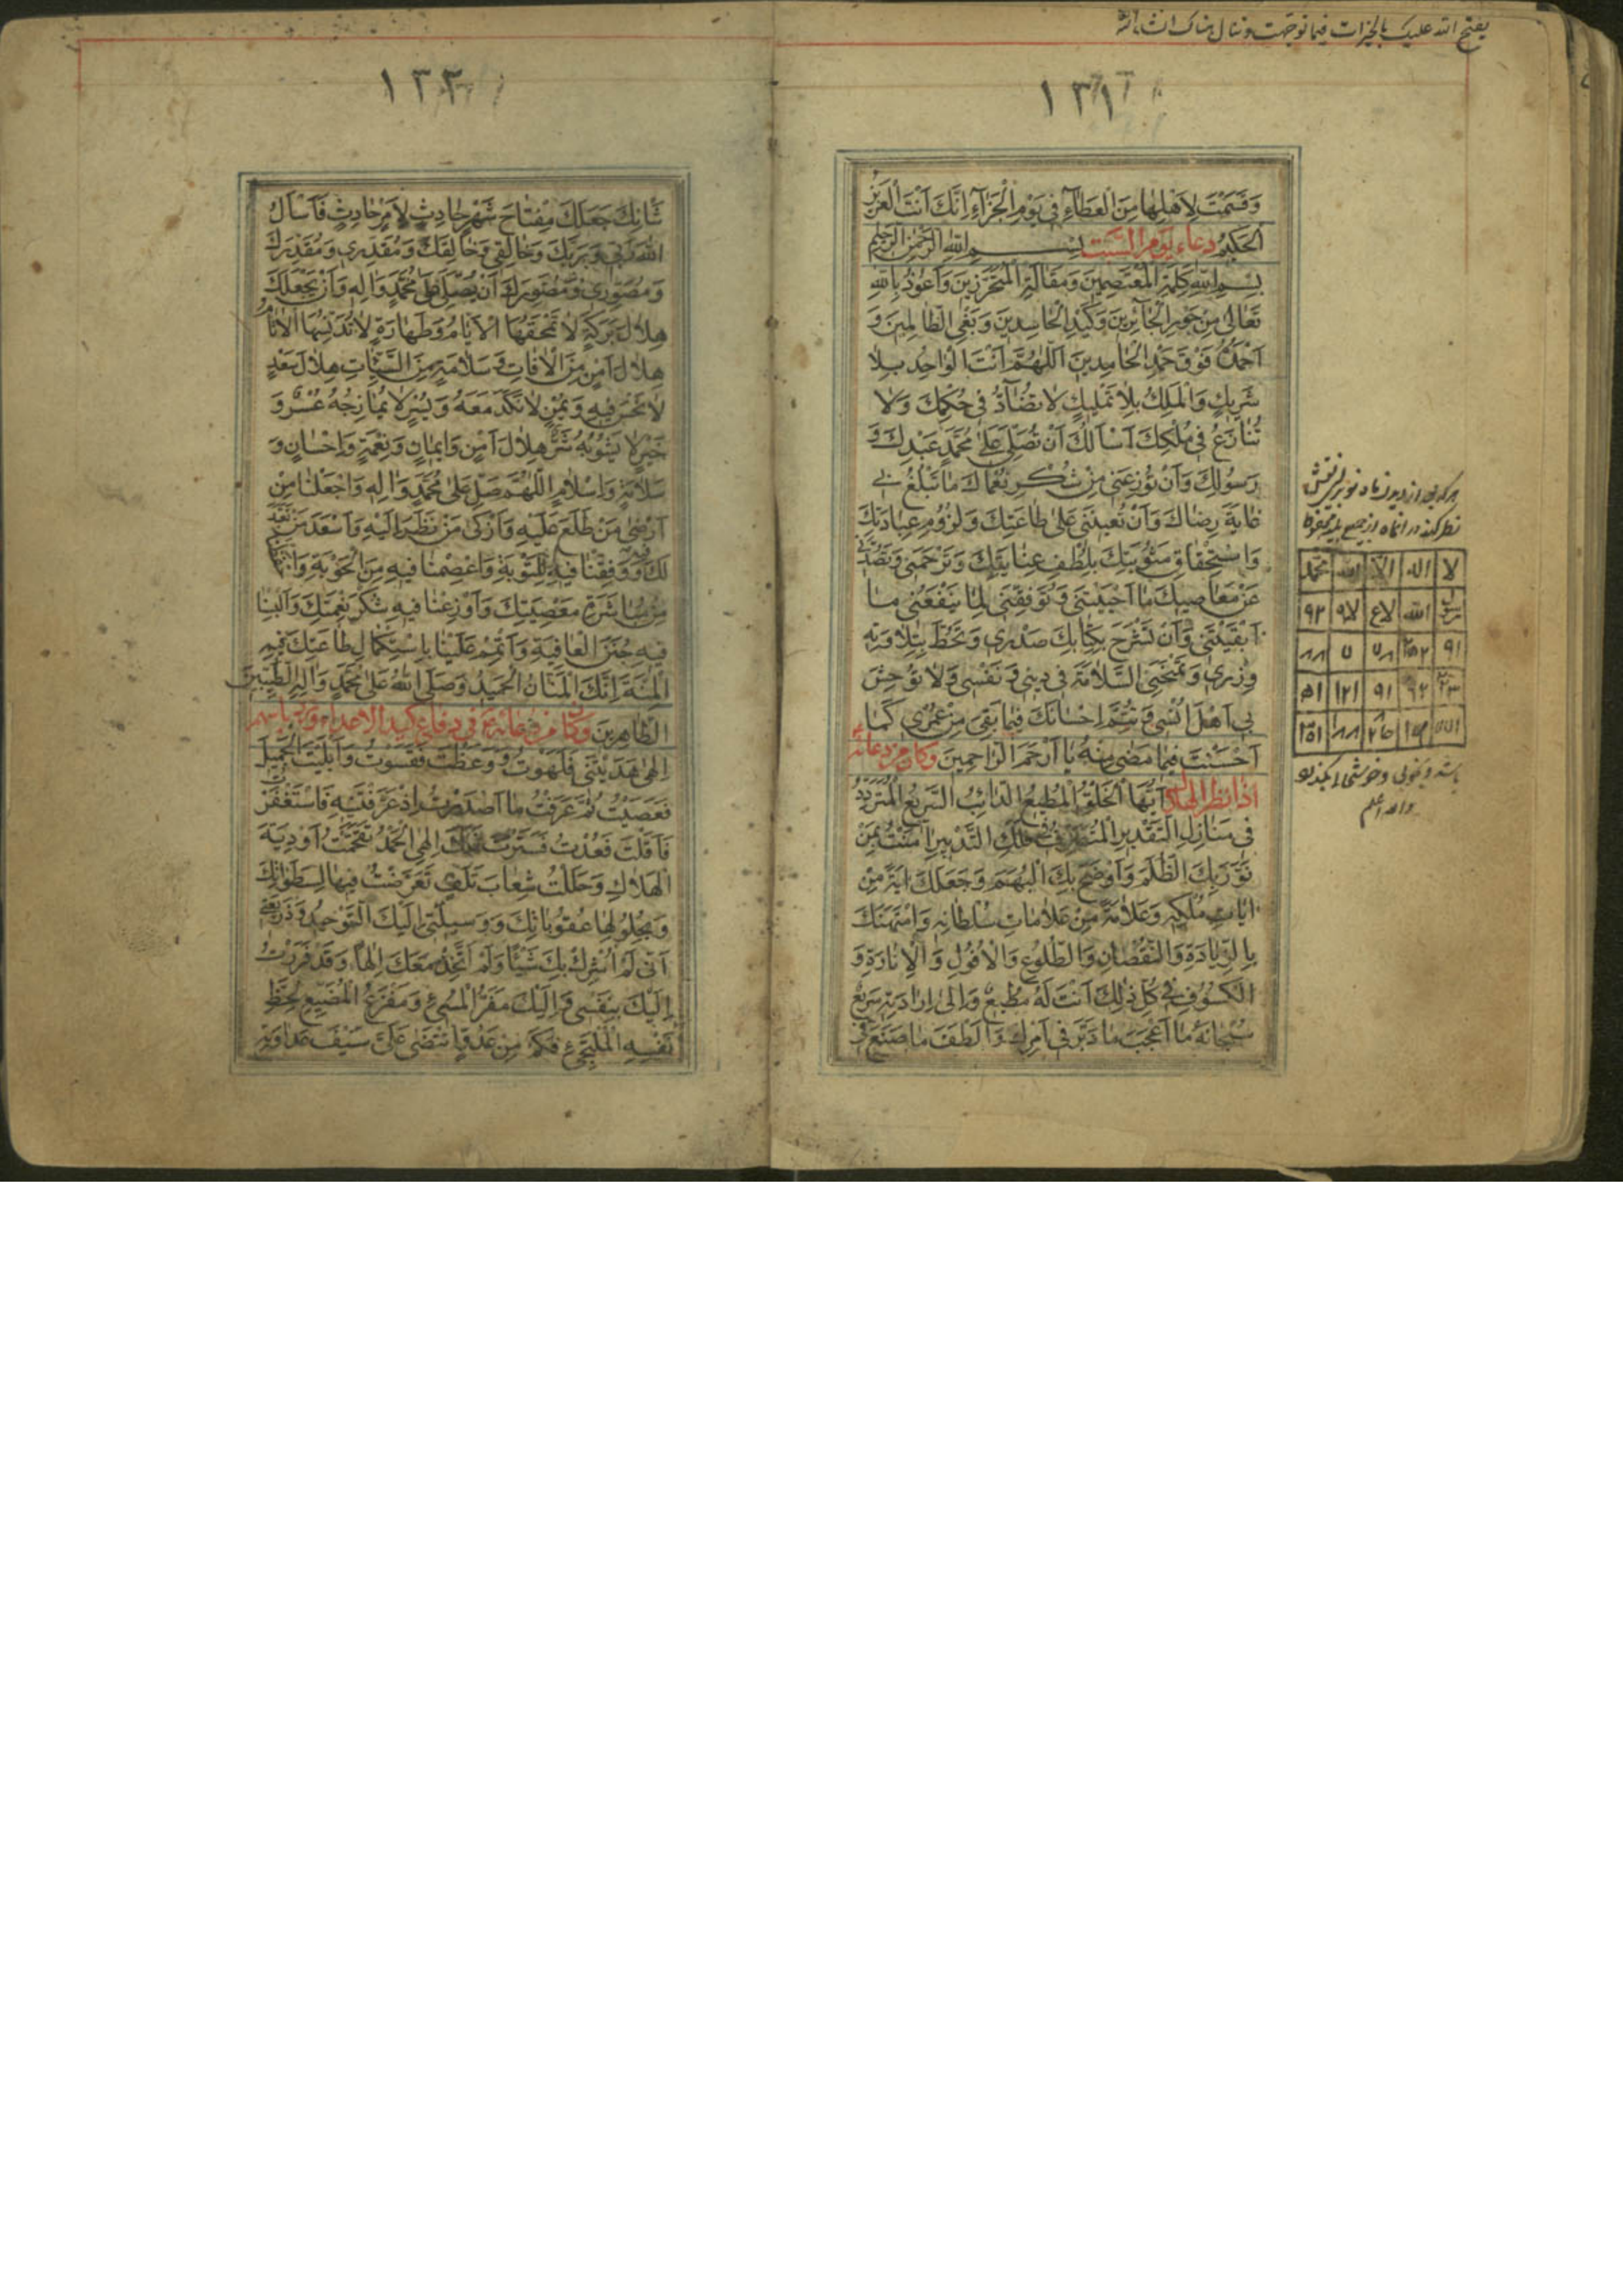 يفتح الله عليك بالخيرات فيما توجهت وتنال مناك انشاء الله
١٣١
وَقَسَمْتَ لِأَهْلِهَا مِنَ الْعَطَاءِ فِي يَوْمِ الْجَزَاءِ إِنَّكَ أَنْتَ الْعَزِيزُ
الْحَكِيمُ دعاء يوم السبت بسم الله الرحمن الرحيم
بِسْمِ اللهِ كَلِمَةِ الْمُعْتَصِمِينَ وَمَقَالَةِ الْمُتَحَرِّزِينَ وَأَعُوذُ بِاللهِ
تَعَالَى مِنْ جَوْرِ الْجَائِرِينَ وَكَيْدِ الْحَاسِدِينَ وَبَغْيِ الظَّالِمِينَ وَ
أَحْمَدُهُ فَوْقَ حَمْدِ الْحَامِدِينَ اَللّٰهُمَّ أَنْتَ الْوَاحِدُ بِلَا
شَرِيكٍ وَالْمَلِكُ بِلَا تَمْلِيكٍ لَا تُضَادُّ فِي حُكْمِكَ وَلَا
تُنَازَعُ فِي مُلْكِكَ أَسْأَلُكَ أَنْ تُصَلِّيَ عَلَى مُحَمَّدٍ عَبْدِكَ وَ
رَسُولِكَ وَأَنْ تُوزِعَنِي مِنْ شُكْرِ نُعْمَاكَ مَا تَبْلُغُ بِي
غَايَةَ رِضَاكَ وَأَنْ تُعِينَنِي عَلَى طَاعَتِكَ وَلُزُومِ عِبَادَتِكَ
وَاسْتِحْقَاقِ مَثُوبَتِكَ بِلُطْفِ عِنَايَتِكَ وَتَرْحَمَنِي وَتَصُدَّنِي
عَنْ مَعَاصِيكَ مَا أَحْيَيْتَنِي وَتُوَفِّقَنِي لِمَا يَنْفَعُنِي مَا
أَبْقَيْتَنِي وَأَنْ تَشْرَحَ بِكِتَابِكَ صَدْرِي وَتَحُطَّ بِتِلَاوَتِهِ
وِزْرِي وَتَمْنَحَنِي السَّلَامَةَ فِي دِينِي وَنَفْسِي وَلَا تُوحِشَ
بِي أَهْلَ أُنْسِي وَتُتِمَّ إِحْسَانَكَ فِيمَا بَقِيَ مِنْ عُمْرِي كَمَا
أَحْسَنْتَ فِيمَا مَضَى مِنْهُ يَا أَرْحَمَ الرَّاحِمِينَ وكان من دعائه
اذا نظر الى الهلال أَيُّهَا الْخَلْقُ الْمُطِيعُ الدَّائِبُ السَّرِيعُ الْمُتَرَدِّدُ
فِي مَنَازِلِ التَّقْدِيرِ الْمُتَصَرِّفُ فِي فَلَكِ التَّدْبِيرِ آمَنْتُ بِمَنْ
نَوَّرَ بِكَ الظُّلَمَ وَأَوْضَحَ بِكَ الْبُهَمَ وَجَعَلَكَ آيَةً مِنْ
آيَاتِ مُلْكِهِ وَعَلَامَةً مِنْ عَلَامَاتِ سُلْطَانِهِ وَامْتَهَنَكَ
بِالزِّيَادَةِ وَالنُّقْصَانِ وَالطُّلُوعِ وَالْأُفُولِ وَالْإِنَارَةِ وَ
الْكُسُوفِ فِي كُلِّ ذٰلِكَ أَنْتَ لَهُ مُطِيعٌ وَإِلَى إِرَادَتِهِ سَرِيعٌ
سُبْحَانَهُ مَا أَعْجَبَ مَا دَبَّرَ فِي أَمْرِكَ وَأَلْطَفَ مَا صَنَعَ فِي
نظر كند در انماه از جميع بلا محفوظ
لا اله الا الله محمد
رسول الله
باشد و بخوبى وخوشى بگذرد
والله اعلم
١٣٢
شَأْنِكَ جَعَلَكَ مِفْتَاحَ شَهْرٍ حَادِثٍ لِأَمْرٍ حَادِثٍ فَأَسْأَلُ
اللهَ رَبِّي وَرَبَّكَ وَخَالِقِي وَخَالِقَكَ وَمُقَدِّرِي وَمُقَدِّرَكَ
وَمُصَوِّرِي وَمُصَوِّرَكَ أَنْ يُصَلِّيَ عَلَى مُحَمَّدٍ وَآلِهِ وَأَنْ يَجْعَلَكَ
هِلَالَ بَرَكَةٍ لَا تَمْحَقُهَا الْأَيَّامُ وَطَهَارَةٍ لَا تُدَنِّسُهَا الْآثَامُ
هِلَالَ أَمْنٍ مِنَ الْآفَاتِ وَسَلَامَةٍ مِنَ السَّيِّئَاتِ هِلَالَ سَعْدٍ
لَا نَحْسَ فِيهِ وَيُمْنٍ لَا نَكَدَ مَعَهُ وَيُسْرٍ لَا يُمَازِجُهُ عُسْرٌ وَ
خَيْرٍ لَا يَشُوبُهُ شَرٌّ هِلَالَ أَمْنٍ وَإِيمَانٍ وَنِعْمَةٍ وَإِحْسَانٍ وَ
سَلَامَةٍ وَإِسْلَامٍ اللّٰهُمَّ صَلِّ عَلَى مُحَمَّدٍ وَآلِهِ وَاجْعَلْنَا مِنْ
أَرْضَى مَنْ طَلَعَ عَلَيْهِ وَأَزْكَى مَنْ نَظَرَ إِلَيْهِ وَأَسْعَدَ مَنْ تَعَبَّدَ
لَكَ فِيهِ وَوَفِّقْنَا فِيهِ لِلتَّوْبَةِ وَاعْصِمْنَا فِيهِ مِنَ الْحَوْبَةِ
مِنْ مُبَاشَرَةِ مَعْصِيَتِكَ وَأَوْزِعْنَا فِيهِ شُكْرَ نِعْمَتِكَ وَأَلْبِسْنَا
فِيهِ جُنَنَ الْعَافِيَةِ وَأَتْمِمْ عَلَيْنَا بِاسْتِكْمَالِ طَاعَتِكَ فِيهِ
الْمِنَّةَ إِنَّكَ الْمَنَّانُ الْحَمِيدُ وَصَلَّى اللهُ عَلَى مُحَمَّدٍ وَآلِهِ الطَّيِّبِينَ
الطَّاهِرِينَ وكان من دعائه ع فى دفاع كيد الاعداء ورد باسهم
إِلٰهِي هَدَيْتَنِي فَلَهَوْتُ وَوَعَظْتَ فَقَسَوْتُ وَأَبْلَيْتَ الْجَمِيلَ
فَعَصَيْتُ ثُمَّ عَرَفْتُ مَا أَصْدَرْتَ إِذْ عَرَّفْتَنِيهِ فَاسْتَغْفَرْتُ
فَأَقَلْتَ فَعُدْتُ فَسَتَرْتَ فَلَكَ إِلٰهِي الْحَمْدُ تَقَحَّمْتُ أَوْدِيَةَ
الْهَلَاكِ وَحَلَلْتُ شِعَابَ تَلَفٍ تَعَرَّضْتُ فِيهَا لِسَطَوَاتِكَ
وَبِحُلُولِهَا عُقُوبَاتِكَ وَوَسِيلَتِي إِلَيْكَ التَّوْحِيدُ وَذَرِيعَتِي
أَنِّي لَمْ أُشْرِكْ بِكَ شَيْئًا وَلَمْ أَتَّخِذْ مَعَكَ إِلٰهًا وَقَدْ فَرَرْتُ
إِلَيْكَ بِنَفْسِي وَإِلَيْكَ مَفَرُّ الْمُسِيءِ وَمَفْزَعُ الْمُضَيِّعِ لِحَظِّ
نَفْسِهِ الْمُلْتَجِئِ فَكَمْ مِنْ عَدُوٍّ انْتَضَى عَلَيَّ سَيْفَ عَدَاوَتِهِ